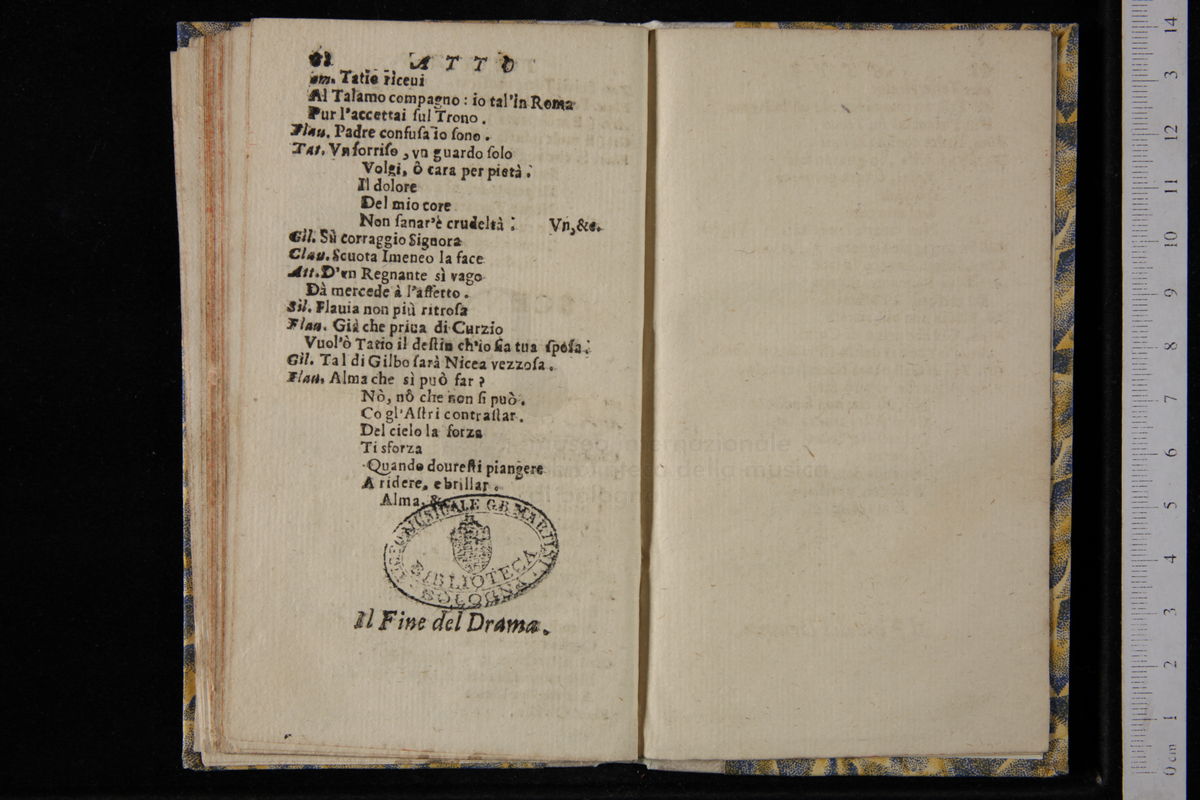 ATTO
Tatio riceui
Al Talamo compagno : io tal'in Roma
Pur l'accettai ſul Trono .
Flau. Padre confuſa io ſono .
Tat. Vn ſorriſo , vn guardo ſolo
Volgi, ô cara per pietà .
Il dolore
Del mio core
Non ſanar'è crudeltà . Vn,&c.
Gil. Sù corraggio Signora
Clau. Scuota Imeneo la face
Att. D'vn Regnante sì vago
Dà mercede à l'affetto .
Sil. Flauia non più ritroſa
Flau. Già che priua di Curzio
Vuol'ò Tatio il deſtin ch'io ſia tua ſpoſa .
Gil. Tal di Gilbo ſarà Nicea vezzoſa .
Flau. Alma che sì può far ?
Nò, nò che non ſi può .
Co gl'Aſtri contraſtar .
Del cielo la forza
Ti sforza
Quando doureſti piangere
A ridere, e brillar .
Alma, &c
LICEO MUSICALE G.B. MARTINI
BIBLIOTECA
BOLOGNA
Il Fine del Drama .
museo internazionale
e biblioteca della musica
di bologna
14
3
12
11
10
9
8
7
6
5
4
3
2
1
0 cm